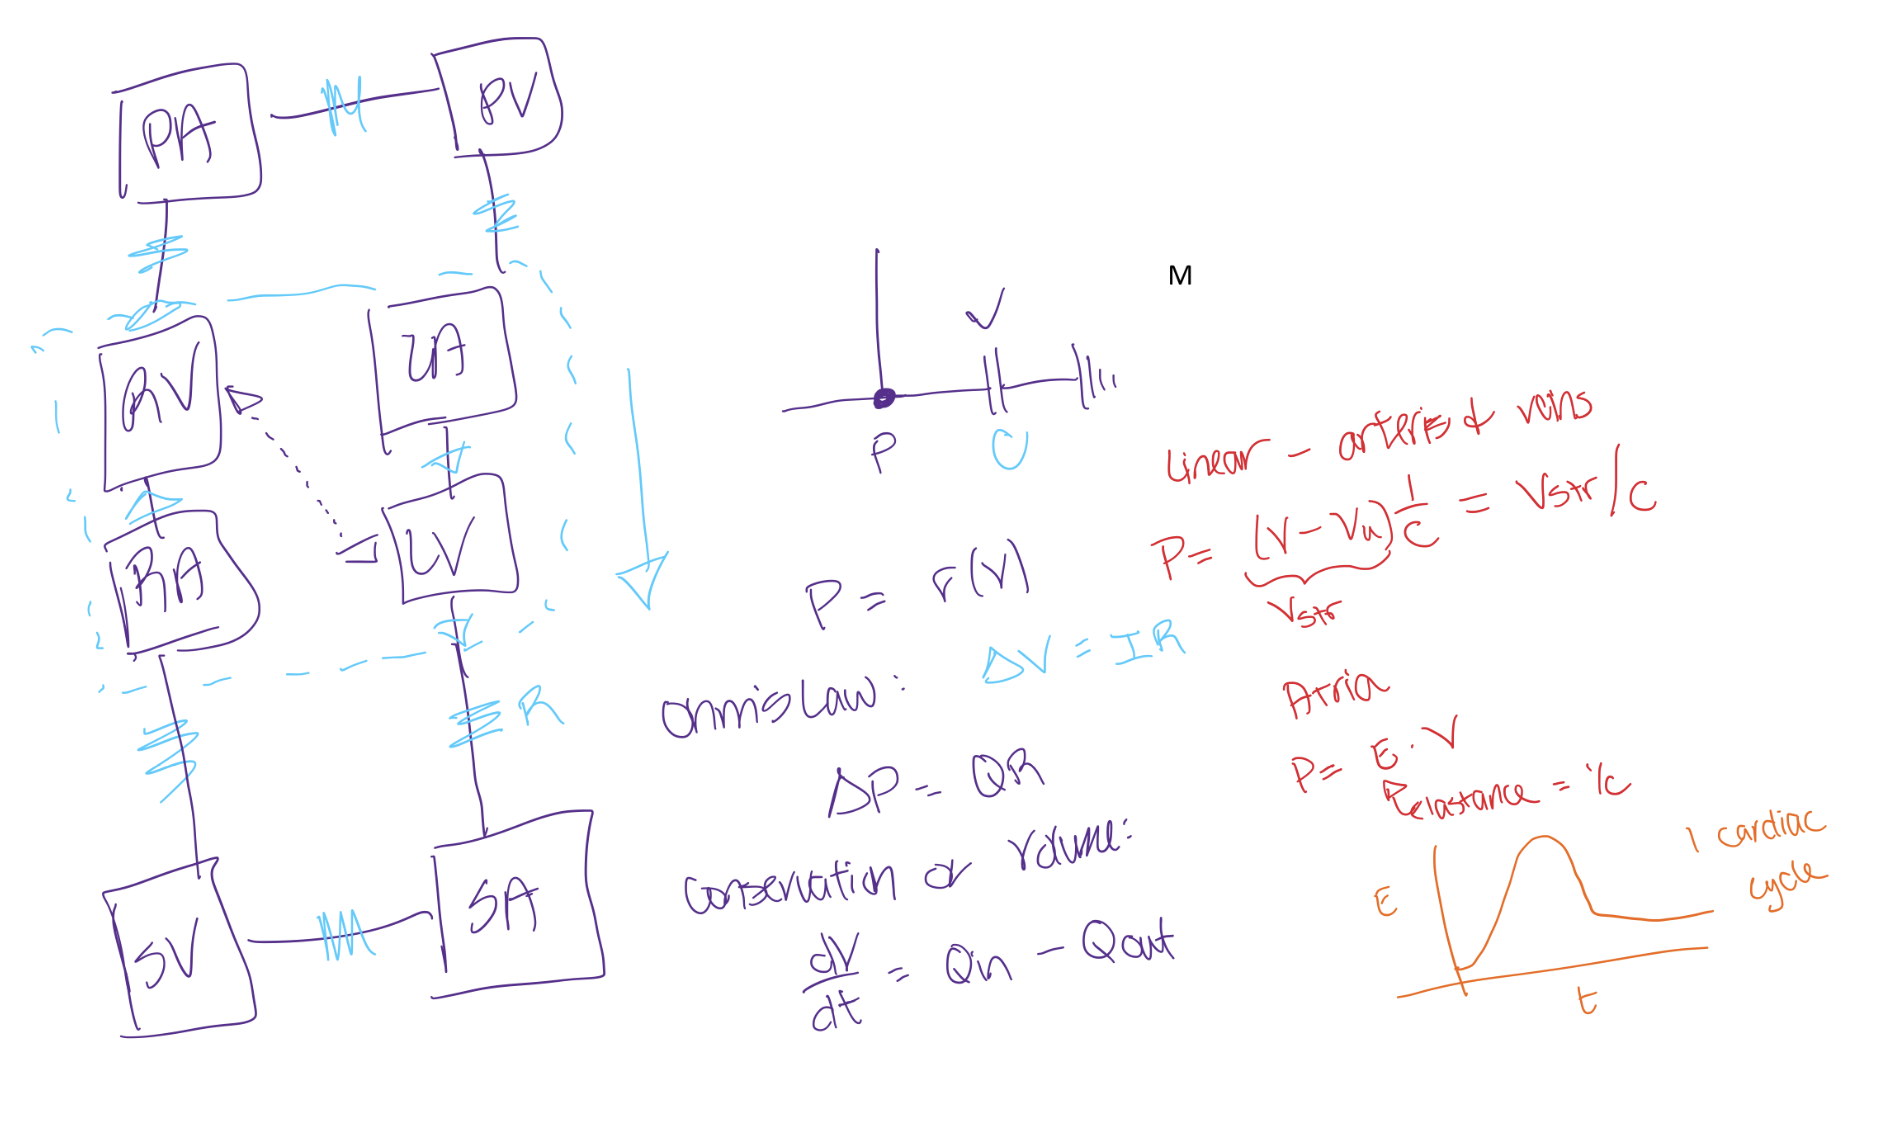 PA
PV
RV
LA
RA
LV
R
SV
SA
V
M
P
C
P = f(V)
ΔV = IR
Ohm's Law:
ΔP = QR
Conservation of Volume:
dV/dt = Qin - Qout
Linear - arteries & veins
P = (V - Vu) 1/C = Vstr/C
Vstr
Atria
P = E · V
elastance = 1/C
1 cardiac
cycle
E
t